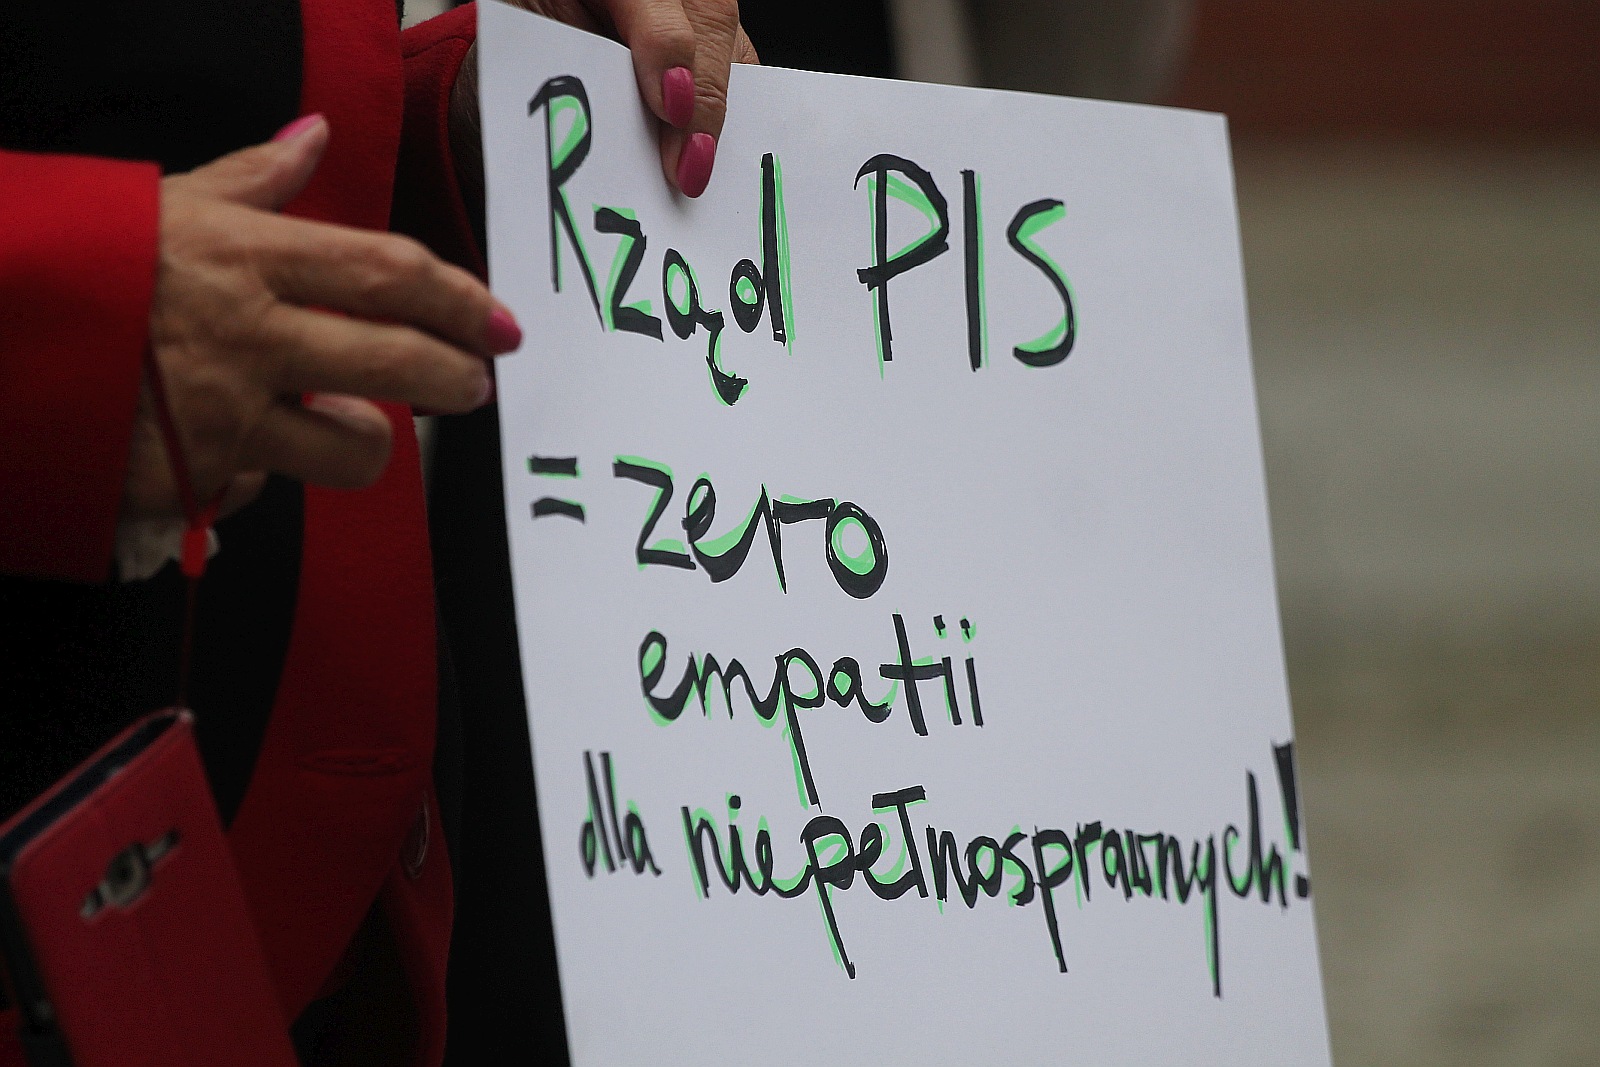 Rząd PIS
= zero
empatii
dla niepełnosprawnych!